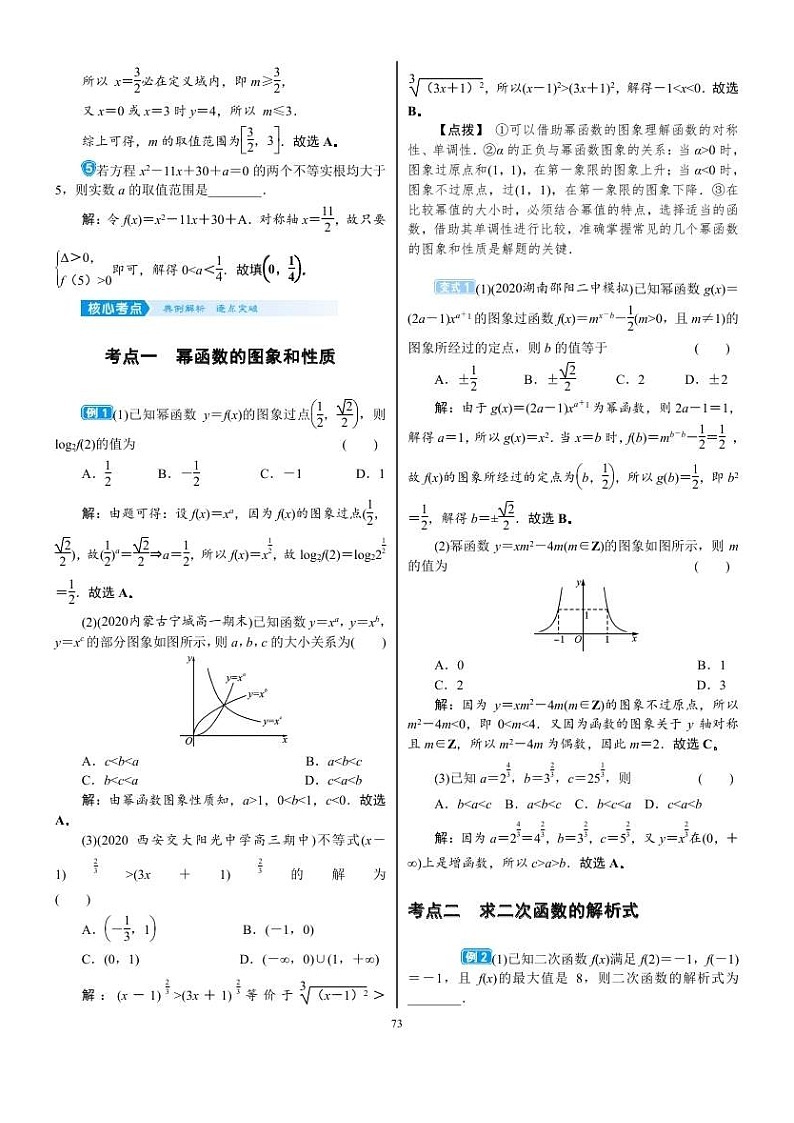 所以 x=3/2必在定义域内，即 m≥3/2，
又 x=0 或 x=3 时 y=4，所以 m≤3.
综上可得，m 的取值范围为[3/2，3]. 故选 A。
⑤若方程 x²-11x+30+a=0 的两个不等实根均大于
5，则实数 a 的取值范围是________.
解：令 f(x)=x²-11x+30+A. 对称轴 x=11/2，故只要
{Δ>0， f（5）>0 即可，解得 0<a<1/4. 故填(0，1/4).
核心考点 典例解析 逐点突破
考点一 幂函数的图象和性质
例1 (1)已知幂函数 y=f(x)的图象过点(1/2，√2/2)，则
log₂f(2)的值为 ( )
A．1/2 B．-1/2 C．-1 D．1
解：由题可得：设 f(x)=xᵃ，因为 f(x)的图象过点(1/2，
√2/2)，故(1/2)ᵃ=√2/2⇒a=1/2，所以 f(x)=x^(1/2)，故 log₂f(2)=log₂2^(1/2)
=1/2. 故选 A。
(2)(2020内蒙古宁城高一期末)已知函数 y=xᵃ，y=xᵇ，
y=xᶜ的部分图象如图所示，则 a，b，c 的大小关系为( )
y
y=xᵃ
y=xᵇ
y=xᶜ
O x
A．c<b<a B．a<b<c
C．b<c<a D．c<a<b
解：由幂函数图象性质知，a>1，0<b<1，c<0. 故选
A。
(3)(2020 西安交大阳光中学高三期中)不等式(x-
1)^(2/3) >(3x + 1)^(2/3) 的 解 为
( )
A．(-1/3，1) B．(-1，0)
C．(0，1) D．(-∞，0)∪(1，+∞)
解：(x-1)^(2/3)>(3x+1)^(2/3)等价于∛（x-1）²>
∛（3x+1）²，所以(x-1)²>(3x+1)²，解得-1<x<0. 故选
B。
【点拨】 ①可以借助幂函数的图象理解函数的对称
性、单调性. ②α 的正负与幂函数图象的关系：当 α>0 时，
图象过原点和(1，1)，在第一象限的图象上升；当 α<0 时，
图象不过原点，过(1，1)，在第一象限的图象下降. ③在
比较幂值的大小时，必须结合幂值的特点，选择适当的函
数，借助其单调性进行比较，准确掌握常见的几个幂函数
的图象和性质是解题的关键.
变式1 (1)(2020湖南邵阳二中模拟)已知幂函数 g(x)=
(2a-1)xᵃ⁺¹的图象过函数 f(x)=mˣ⁻ᵇ-1/2(m>0，且 m≠1)的
图象所经过的定点，则 b 的值等于 ( )
A．±1/2 B．±√2/2 C．2 D．±2
解：由于 g(x)=(2a-1)xᵃ⁺¹为幂函数，则 2a-1=1，
解得 a=1，所以 g(x)=x². 当 x=b 时，f(b)=mᵇ⁻ᵇ-1/2=1/2 ，
故 f(x)的图象所经过的定点为(b，1/2)，所以 g(b)=1/2，即 b²
=1/2，解得 b=±√2/2. 故选 B。
(2)幂函数 y=xm²-4m(m∈Z)的图象如图所示，则 m
的值为 ( )
y
1
-1 O 1 x
A．0 B．1
C．2 D．3
解：因为 y=xm²-4m(m∈Z)的图象不过原点，所以
m²-4m<0，即 0<m<4. 又因为函数的图象关于 y 轴对称
且 m∈Z，所以 m²-4m 为偶数，因此 m=2. 故选 C。
(3)已知 a=2^(4/3)，b=3^(2/3)，c=25^(1/3)，则 ( )
A．b<a<c B．a<b<c C．b<c<a D．c<a<b
解：因为 a=2^(4/3)=4^(2/3)，b=3^(2/3)，c=5^(2/3)，又 y=x^(2/3)在(0，+
∞)上是增函数，所以 c>a>b. 故选 A。
考点二 求二次函数的解析式
例2 (1)已知二次函数 f(x)满足 f(2)=-1，f(-1)
=-1，且 f(x)的最大值是 8，则二次函数的解析式为
________.
73